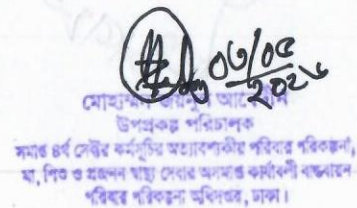 ০৩/০৫
২০২৬
মোহাম্মদ
উপপ্রকল্প পরিচালক
সমাপ্ত ৪র্থ সেক্টর কর্মসূচির অত্যাবশ্যকীয় পরিবার পরিকল্পনা,
মা, শিশু ও প্রজনন স্বাস্থ্য সেবার অসমাপ্ত কার্যাবলী বাস্তবায়ন
পরিবার পরিকল্পনা অধিদপ্তর, ঢাকা।